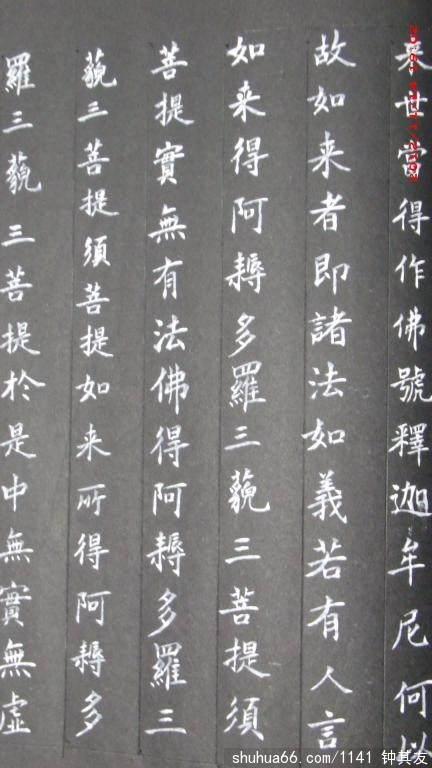 来世當得作佛號釋迦牟尼何以
故如来者即諸法如義若有人言
如来得阿耨多羅三藐三菩提須
菩提實無有法佛得阿耨多羅三
藐三菩提須菩提如来所得阿耨多
羅三藐三菩提於是中無實無虛
shuhua66.com/1141 钟其友